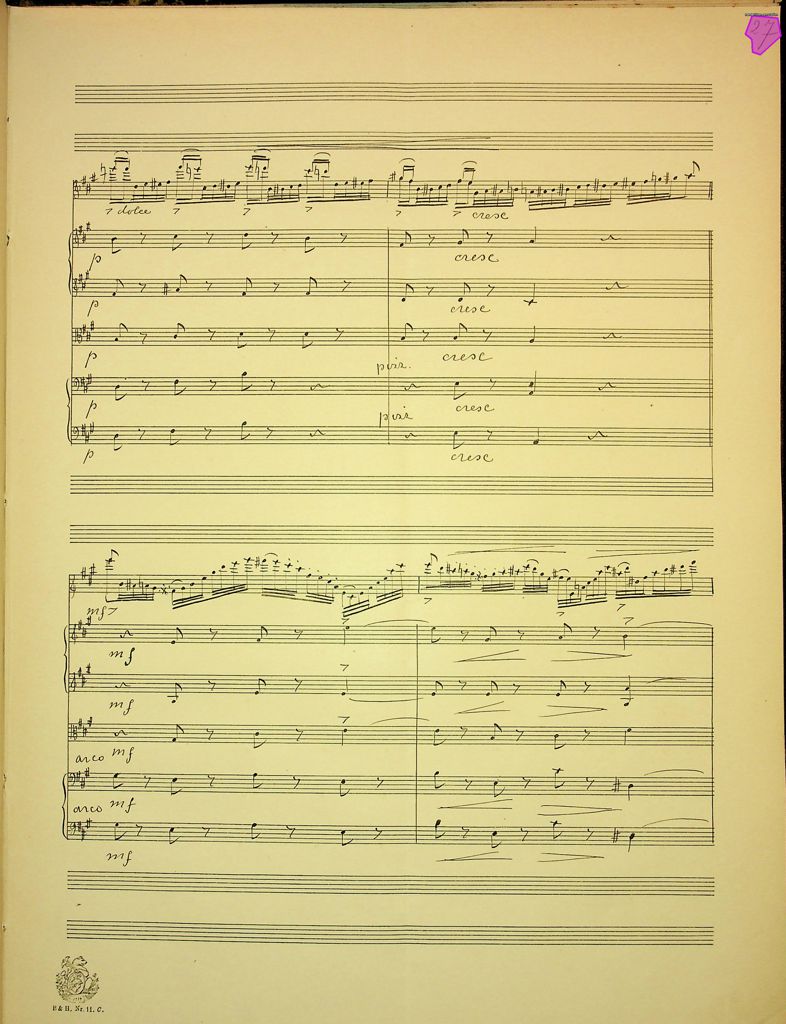 27
dolce cresc
p cresc
p cresc
p cresc
pizz.
p cresc
pizz
p cresc
mf
mf
mf
arco mf
arco mf
mf
B & H. Nr. 11. C.